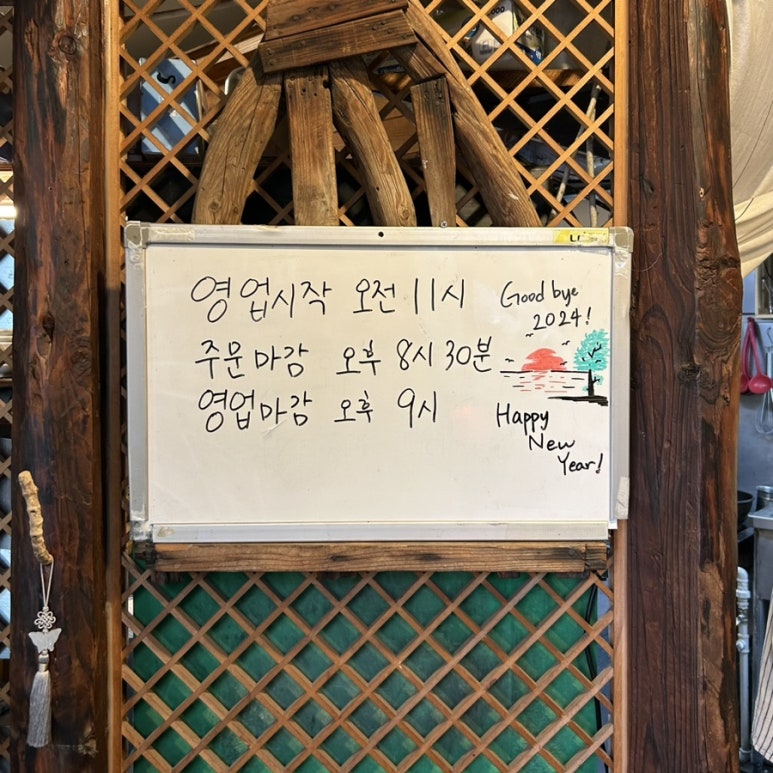 영업시작 오전 11시
주문마감 오후 8시 30분
영업마감 오후 9시
Good bye
2024!
Happy
New
Year!